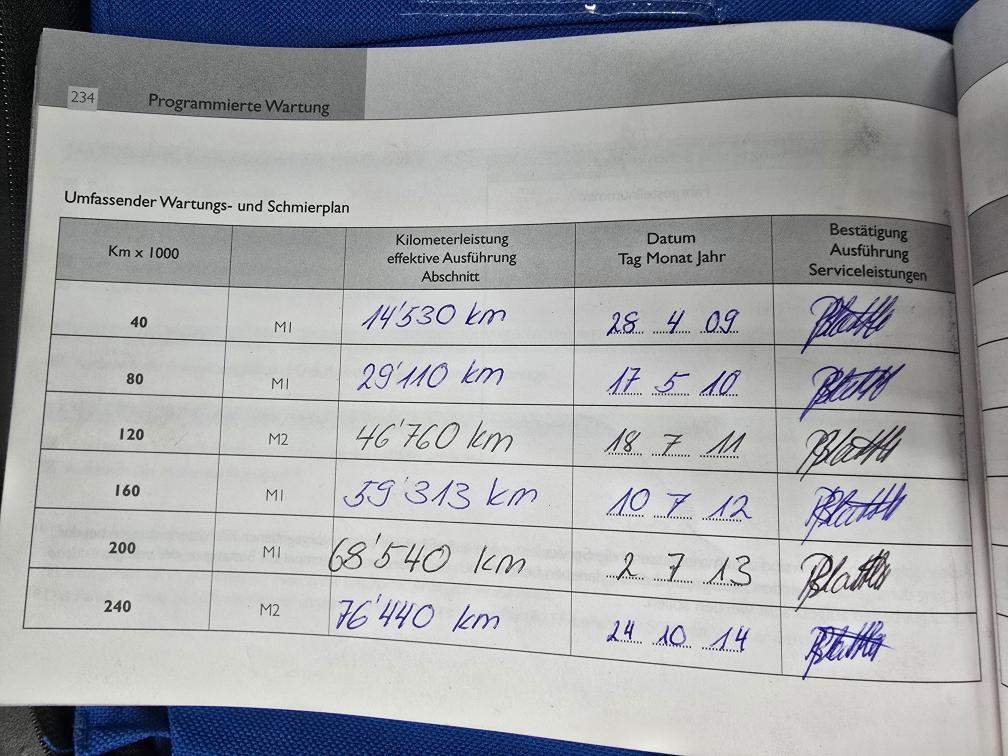 234 Programmierte Wartung
Umfassender Wartungs- und Schmierplan
Km x 1000
Kilometerleistung
effektive Ausführung
Abschnitt
Datum
Tag Monat Jahr
Bestätigung
Ausführung
Serviceleistungen
40 M1 14'530 km 28 4 09
80 M1 29'110 km 17 5 10
120 M2 46'760 km 18 7 11
160 M1 59'313 km 10 7 12
200 M1 68'540 km 2 7 13
240 M2 76'440 km 24 10 14